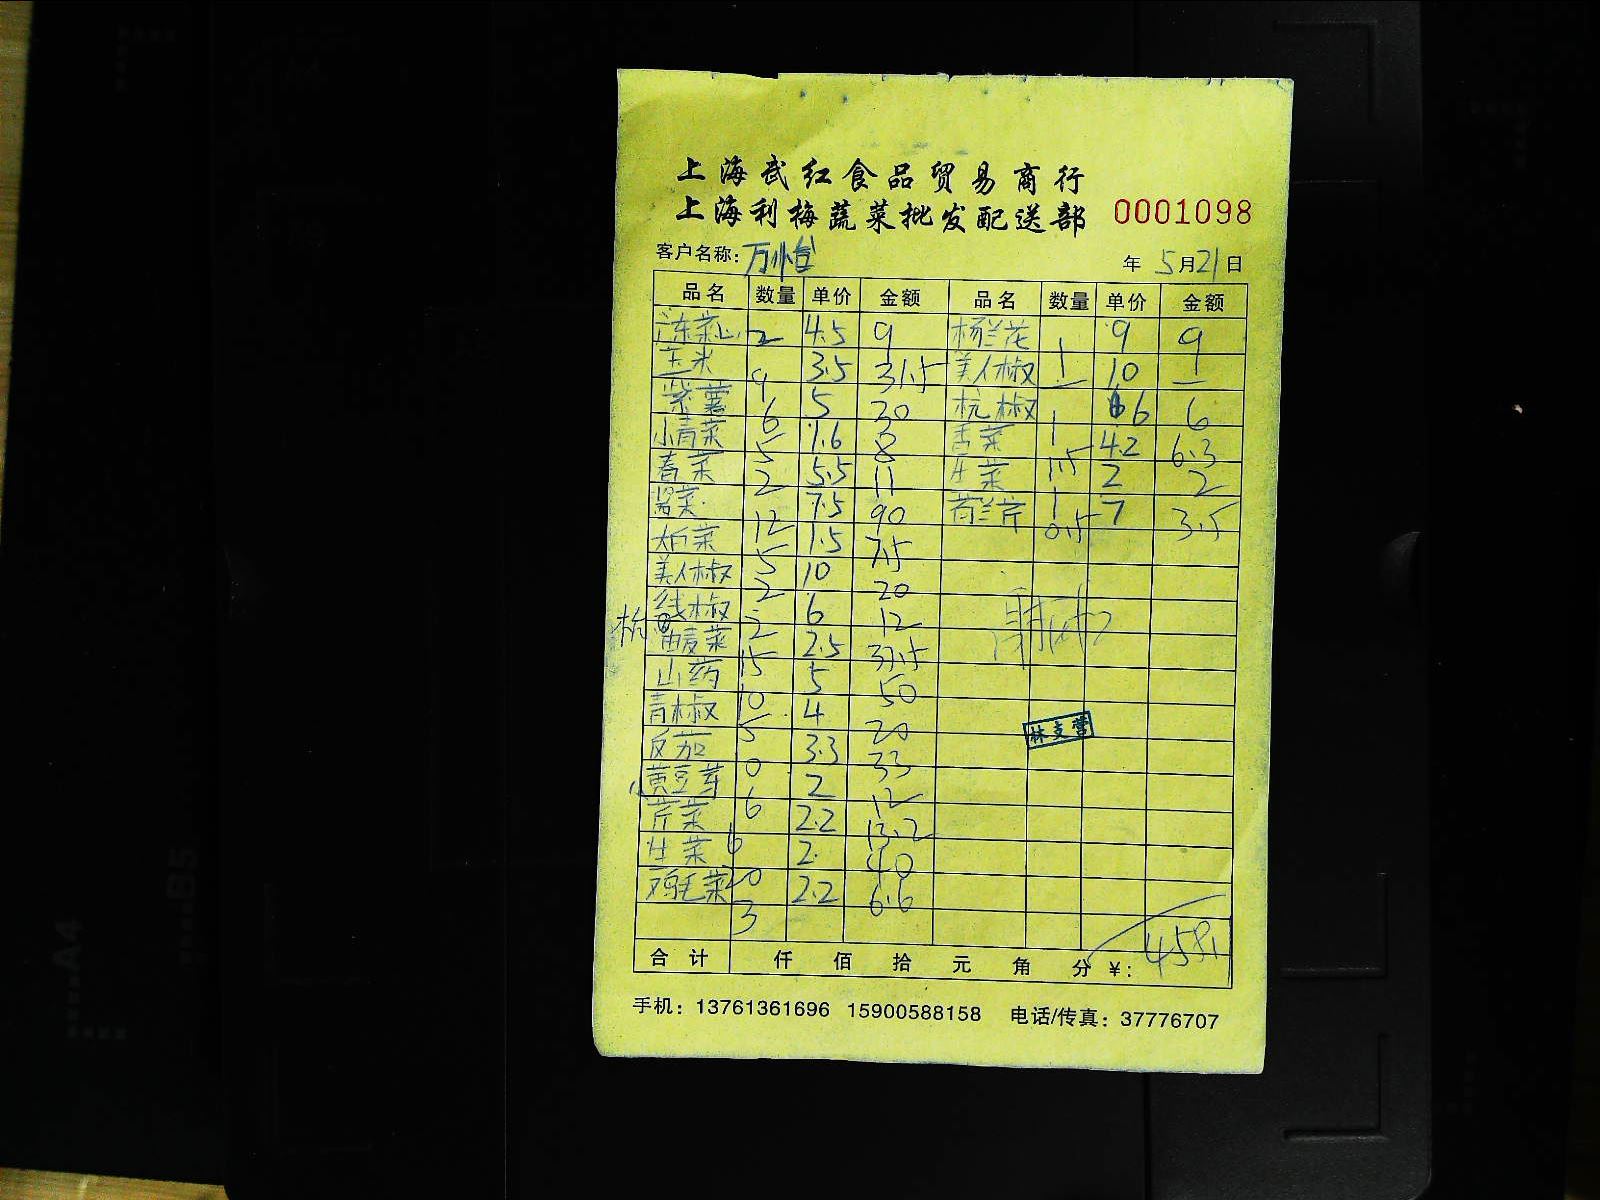 上海武红食品贸易商行
上海利梅蔬菜批发配送部 0001098
客户名称: 万怡 年 5月21日
品名 数量 单价 金额 品名 数量 单价 金额
冻菜心 2 4.5 9 杨兰花 1 9 9
玉米 9 3.5 31.5 美人椒 1 10
紫薯 6 5 30 杭椒 1 6 6
小青菜 5 1.6 8 舌菜 1.5 4.2 6.3
春菜 2 5.5 11 生菜 1 2 2
12 7.5 90 荷兰芹 0.5 7 3.5
5 1.5 7.5
美人椒 2 10 20
线椒 2 6 12
油麦菜 15 2.5 37.5
山药 10 5 50
青椒 5 4 20
反茄 10 3.3 33
黄豆芽 6 2 12
芹菜 6 2.2 13.2
生菜 20 2 40
鸡毛菜 3 2.2 6.6
林支营
合计 仟 佰 拾 元 角 分 ¥: 4581
手机: 13761361696 15900588158 电话/传真: 37776707